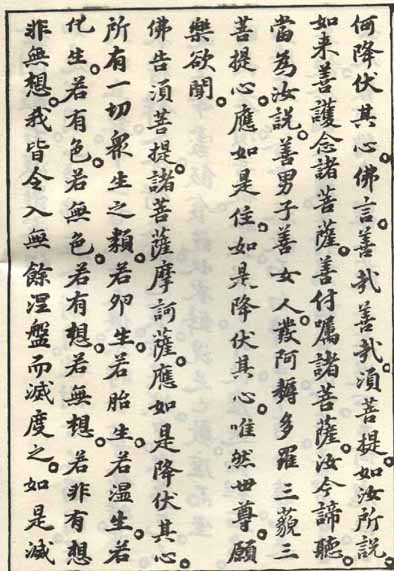 何降伏其心。佛言善哉善哉。須菩提如汝所說。
如来善護念諸菩薩。善付囑諸菩薩。汝今諦聽。
當為汝說。善男子善女人。發阿耨多羅三藐三
菩提心。應如是住。如是降伏其心。唯然世尊。願
樂欲聞。
佛告須菩提。諸菩薩摩訶薩。應如是降伏其心。
所有一切衆生之類。若卵生。若胎生。若濕生。若
化生。若有色。若無色。若有想。若無想。若非有想
非無想。我皆令入無餘涅盤而滅度之。如是滅